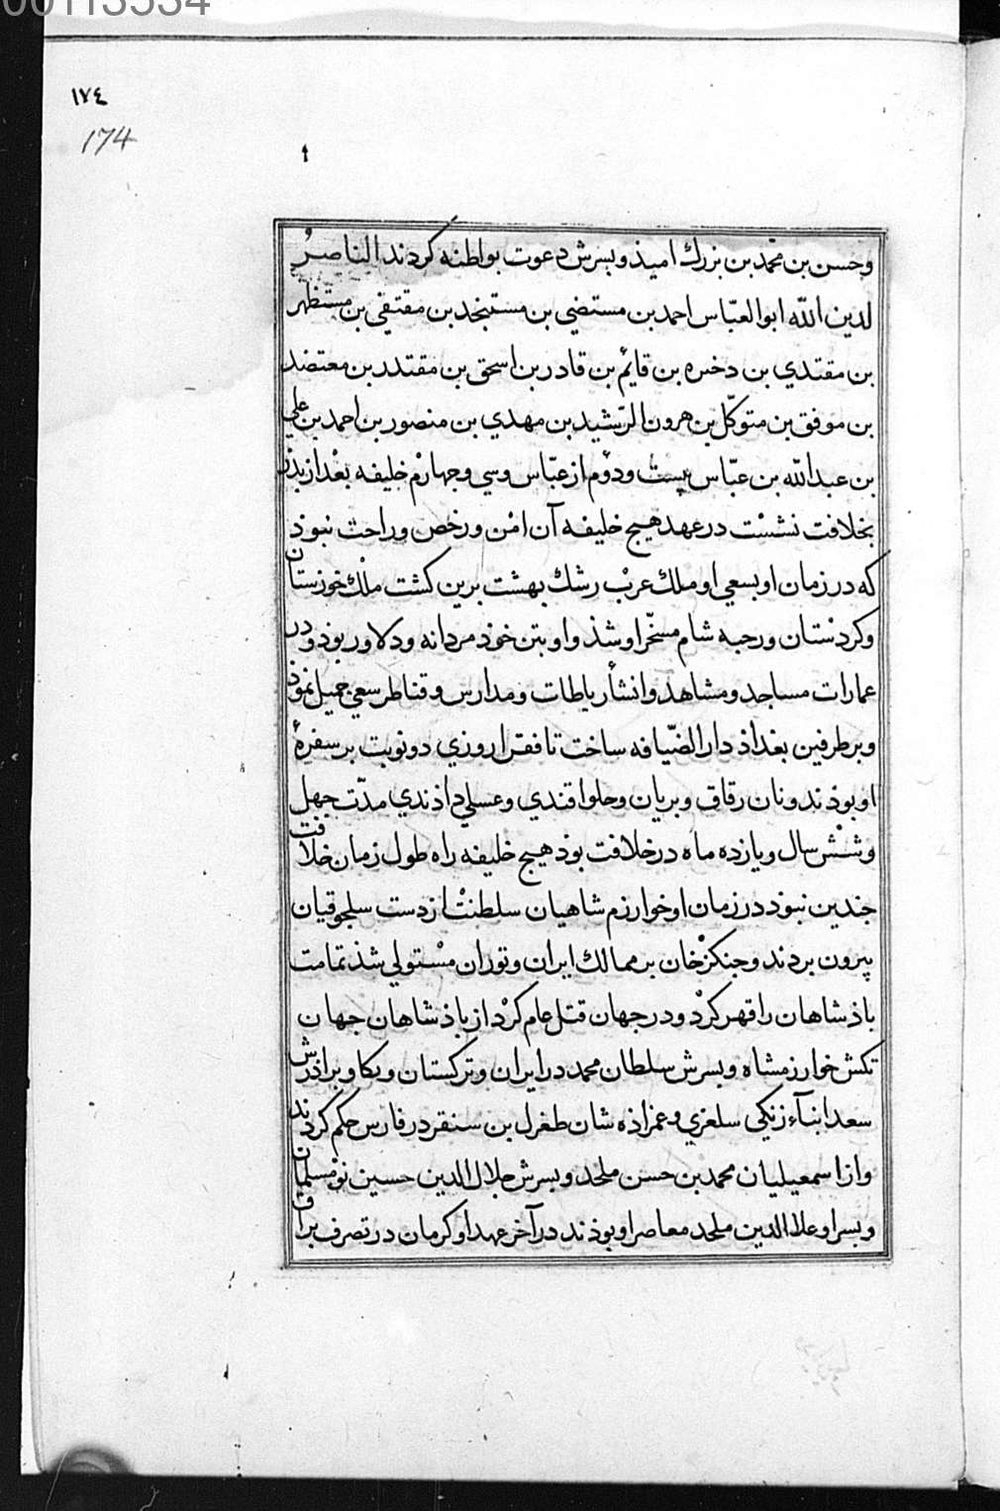 00113534
١٧٤
174
وحسن بن محمّد بن بزرك اميذ وبسرش دعوت بواطنه كردند الناصرُ
لدين الله ابو العبّاس احمد بن مستضي بن مستنجد بن مقتفي بن مستظهر
بن مقتدي بن دخيره بن قايم بن قادر بن اسحق بن مقتدر بن معتضد
بن موفق بن متوكّل بن هرون الرّشيد بن مهدي بن منصور بن احمد بن علي
بن عبدالله بن عبّاس بيست ودوّم از عبّاس وسي وجهارم خليفه بعْد از بذر
بخلافت نشسْت در عهد هيج خليفه آن امْن ورخص وراحت نبوذ
كه در زمان او بسعي او ملك عربْ رشك بهشت برين كشت ملْك خوزستان
وكردسْتان ورحبه شام مسخّر او شذ واو بتن خوذ مردانه ودلاور بوذ ودر
عمارات مساجد ومشاهد وانشأ رباطات ومدارس وقناطر سعي جميل نموذ
وبر طرفين بغداذ دار الضّيافه ساخت تا فقرا روزي دو نوبت بر سفرهٔ
او بوذند ونان رقاق وبريان وحلوا قندي وعسلي داذندي مدّت جهل
وشْش سال ويازده ماه در خلافت بوذ هيج خليفه راه طول زمان خلافت
جندين نبوذ در زمان او خوارزم شاهيان سلطنتْ از دست سلجوقيان
بيرون بردند وجنكزْخان بر ممالك ايران وتوران مسْتولي شذ تمامت
باذشاهان را قهر كرْد ودر جهان قتل عام كرْد از باذشاهان جهان
تكش خوارزمشاه وبسرش سلطان محمد در ايران وتركستان وتكا وبراذرش
سعد ابنآء زنكي سلغري وعمزاذه شان طغرل بن سنقر در فارس حكم كردند
واز اسمعيليان محمد بن حسن ملحد وبسرش جلال الدين حسين نو مسلمان
وبسر او علا الدين ملحد معاصر او بوذند در آخر عهد او كرمان در تصرف براق